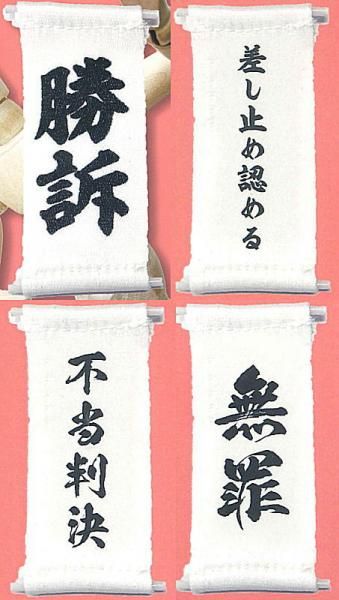 勝訴
差し止め認める
不当判決
無罪